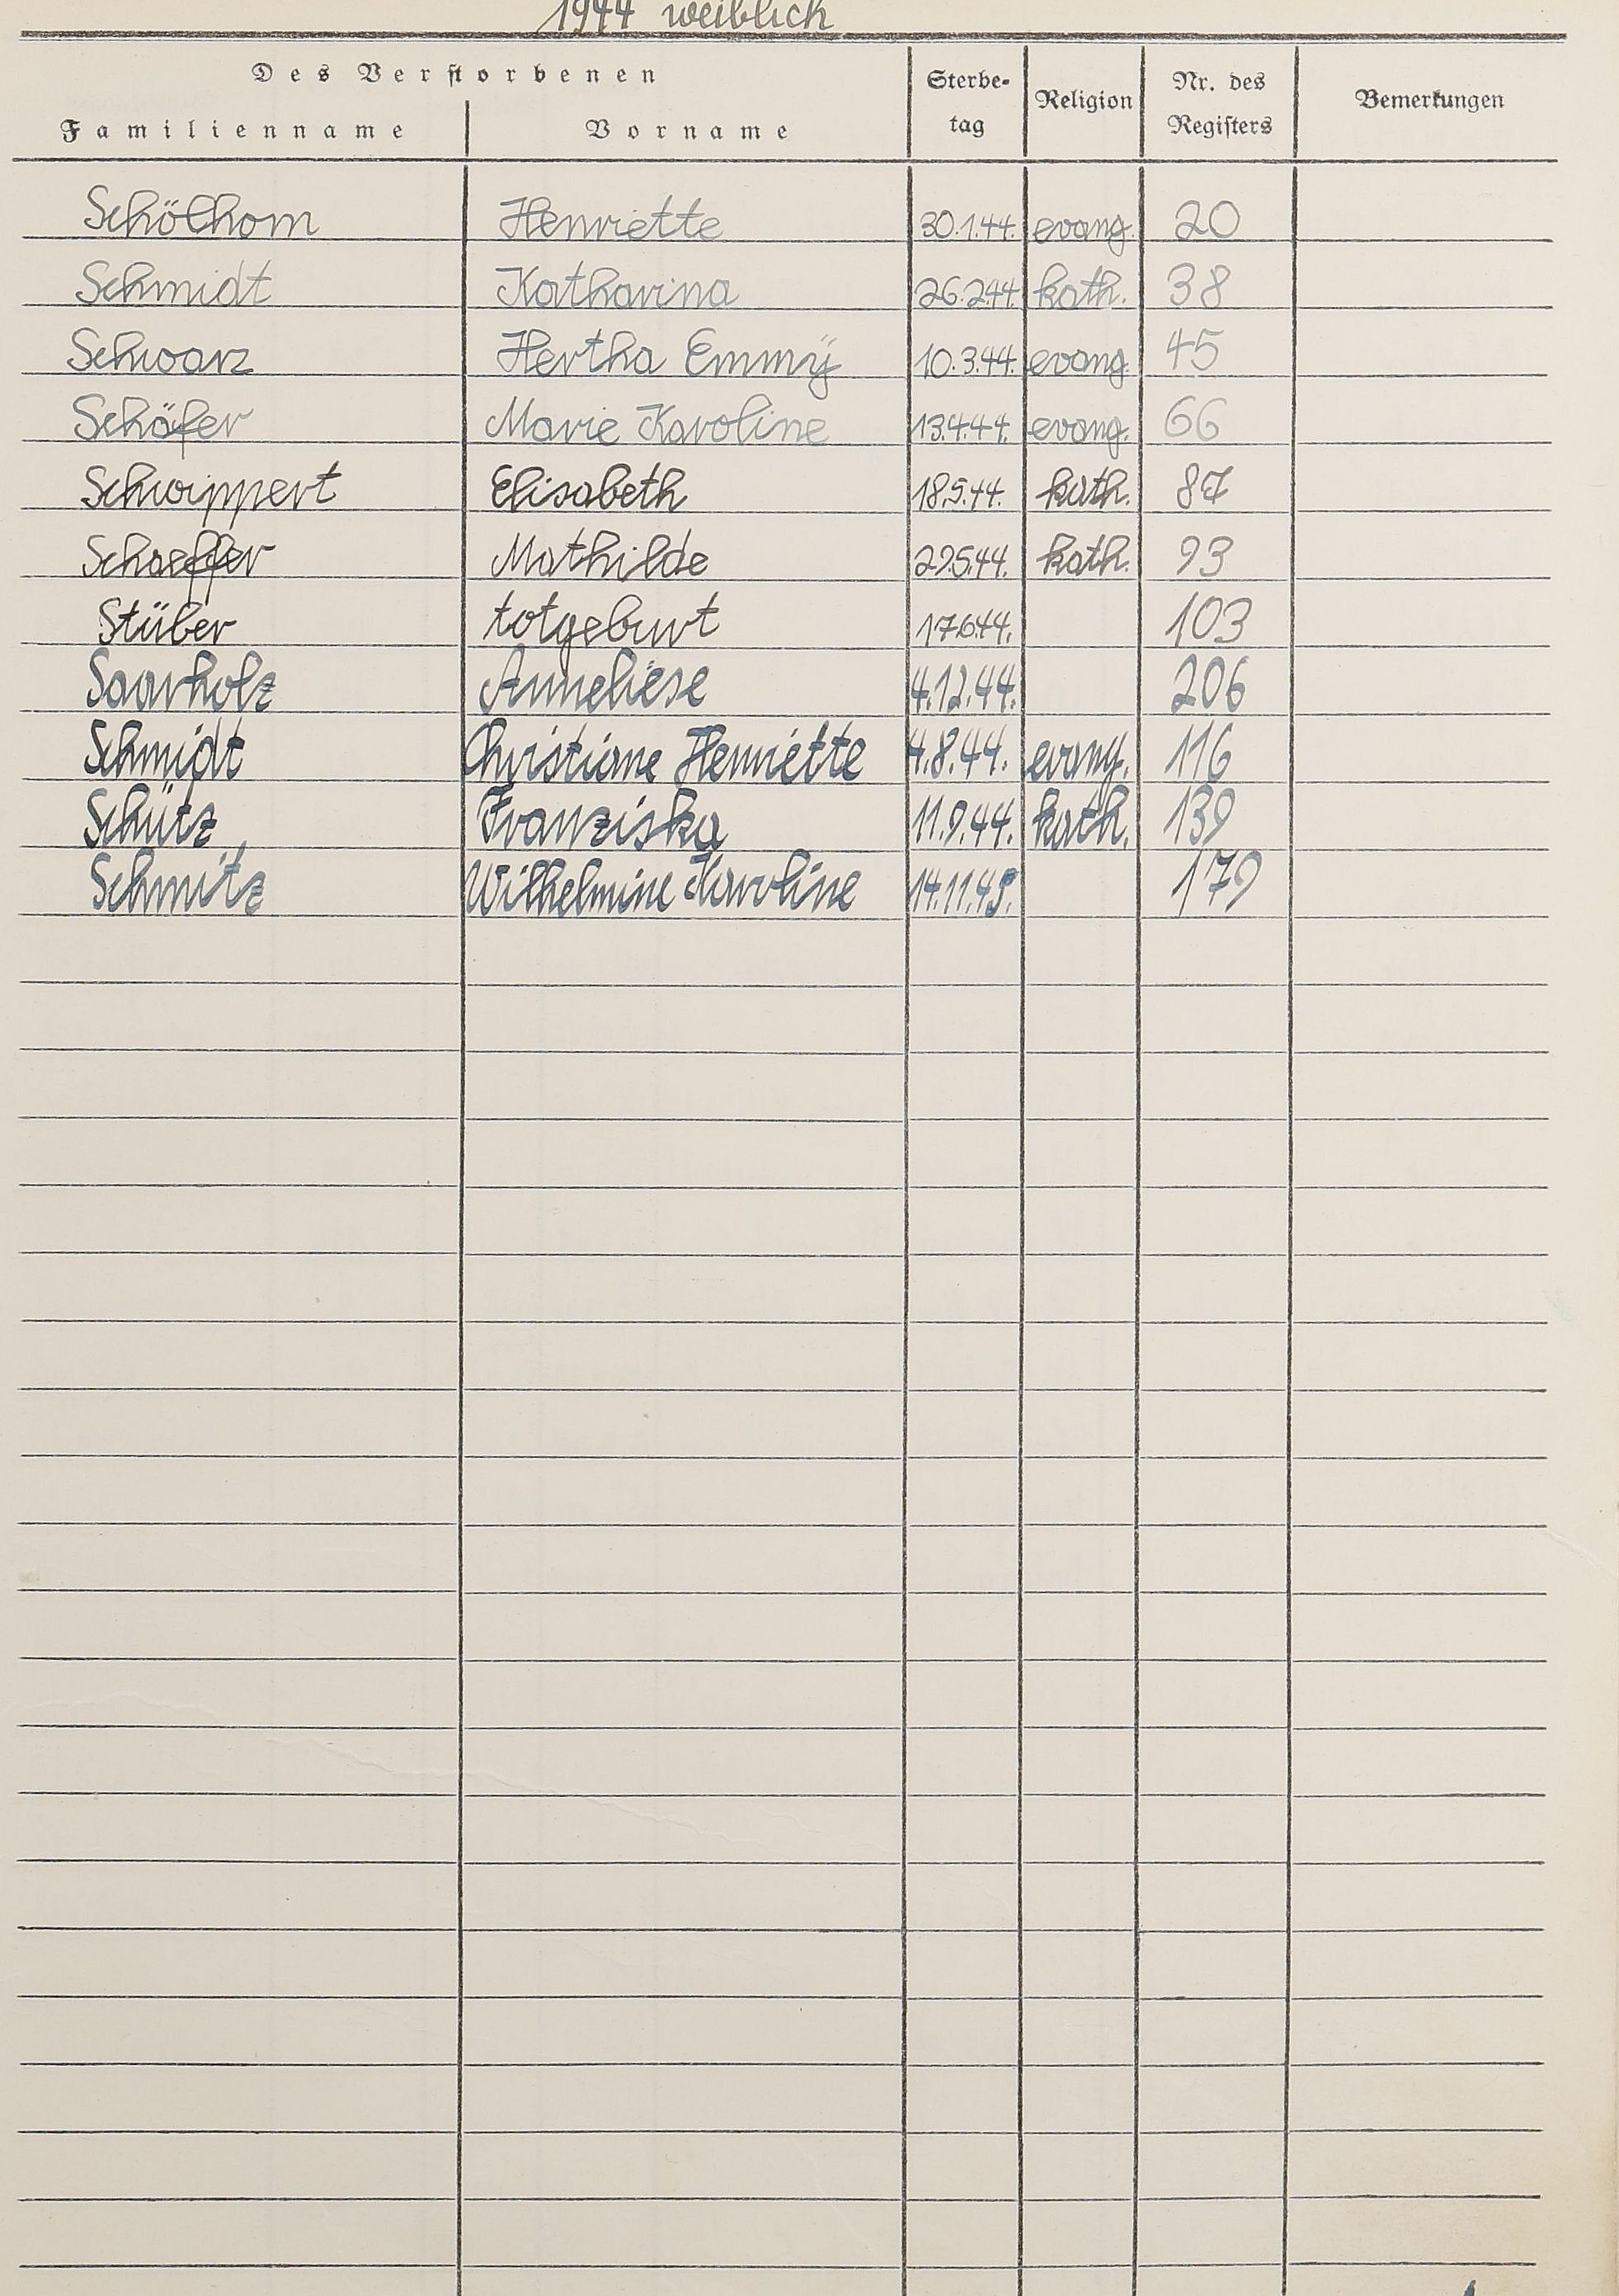 1944 weiblich
Des Verstorbenen
Familienname Vorname Sterbe-tag Religion Nr. des Registers Bemerkungen
Schölhom Henriette 30.1.44. evang. 20
Schmidt Katharina 26.2.44. kath. 38
Schwarz Hertha Emmy 10.3.44. evang. 45
Schäfer Marie Karoline 13.4.44. evang. 66
Schwippert Elisabeth 18.5.44. kath. 87
Schaeffer Mathilde 29.5.44. kath. 93
Stüber totgeburt 17.6.44. 103
Saarholz Anneliese 4.12.44. 206
Schmidt Christiane Henriette 4.8.44. evang. 116
Schütz Franziska 11.9.44. kath. 139
Schmitz Wilhelmine Karoline 14.11.45. 179